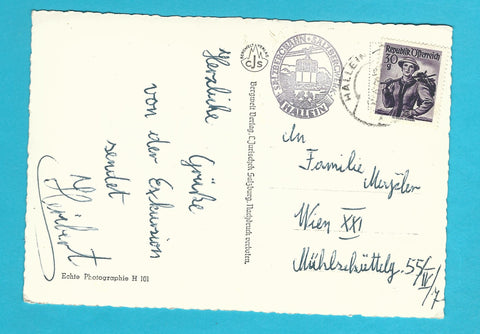 Herzliche Grüße
von der Exkursion
sendet
Herbert
Echte Photographie H 101
CJS
Bergwelt Verlag, C. Jurischek, Salzburg. Nachdruck verboten.
SALZBERGBAHN
HALLEIN
HALLEIN
Republik Österreich
30
g
An
Familie
Wien XXI
Mühlschüttelg. 55/IV/7